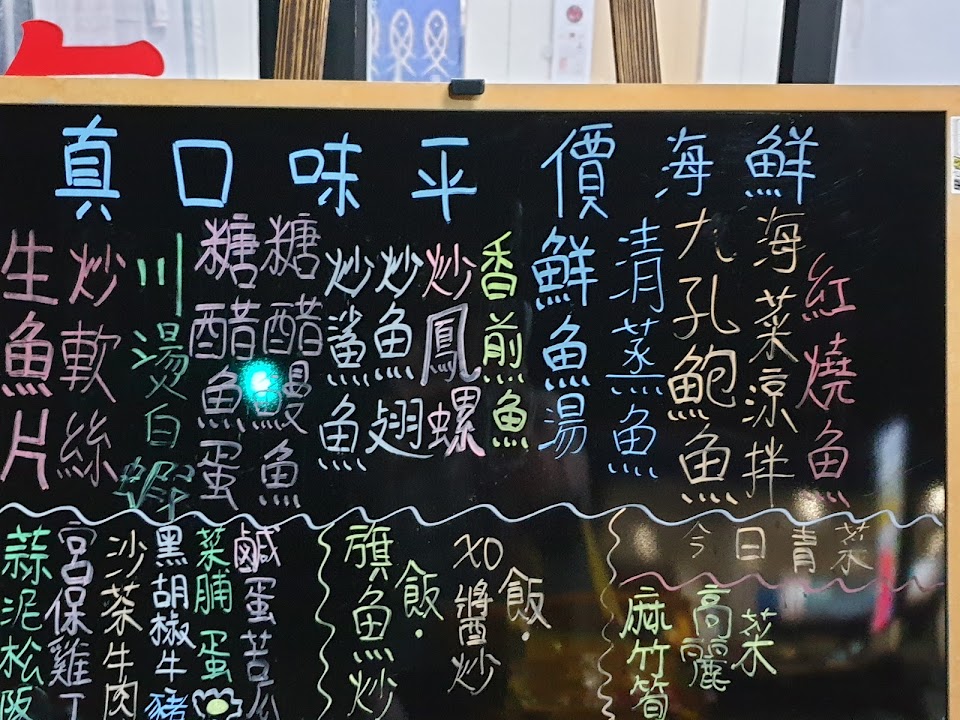 真口味平價海鮮
紅燒魚
海菜涼拌
九孔鮑魚
清蒸魚
鮮魚湯
香煎魚
炒鳳螺
炒魚翅
炒鯊魚
糖醋鰻魚
糖醋魚蛋
川燙白蝦
炒軟絲
生魚片
今日青菜
高麗菜
麻竹筍
XO醬炒飯.
旗魚炒飯.
鹹蛋苦瓜
菜脯蛋
黑胡椒牛 豬
沙茶牛肉
宮保雞丁
蒜泥松阪